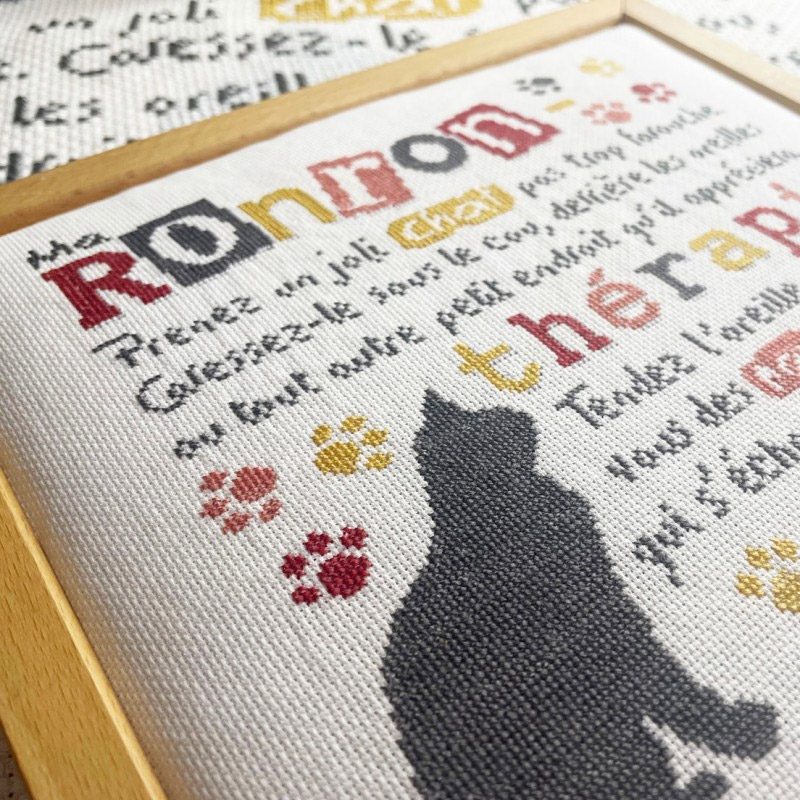 un joli chat
. Caressez-le
les oreill
Ma
Ronron-
Prenez un joli chat pas trop farouche
Caressez-le sous le cou, derrière les oreilles
ou tout autre petit endroit qu'il appréciera
thérapi
Tendez l'oreille
vous des
qui s'écha